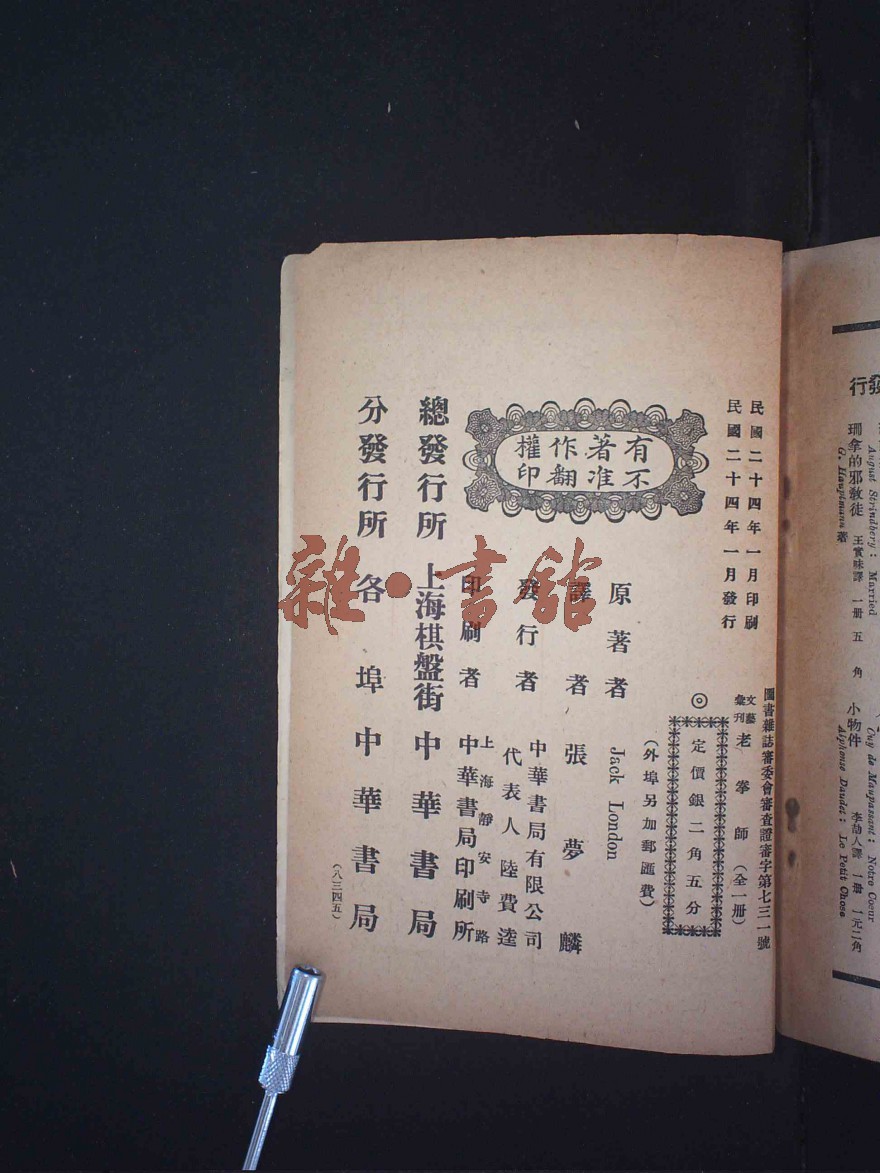 民國二十四年一月印刷
民國二十四年一月發行
圖書雜誌審委會審查證審字第七三一號
文藝彙刊 老拳師（全一册）
◎定價銀二角五分
（外埠另加郵匯費）
有著作權
不准翻印
原著者 Jack London
譯者 張夢麟
發行者 中華書局有限公司
代表人 陸費逵
印刷者 上海靜安寺路
中華書局印刷所
總發行所 上海棋盤街 中華書局
分發行所 各埠中華書局
（八三四五）
雜·書館
發行
August Strindberg: Married
珊拿的邪教徒 王實味譯 一册 五角
G. Hauptmann 著
Guy de Maupassant: Notre Coeur
小物件 李劼人譯 一册 一元二角
Alphonse Daudet: Le Petit Chose